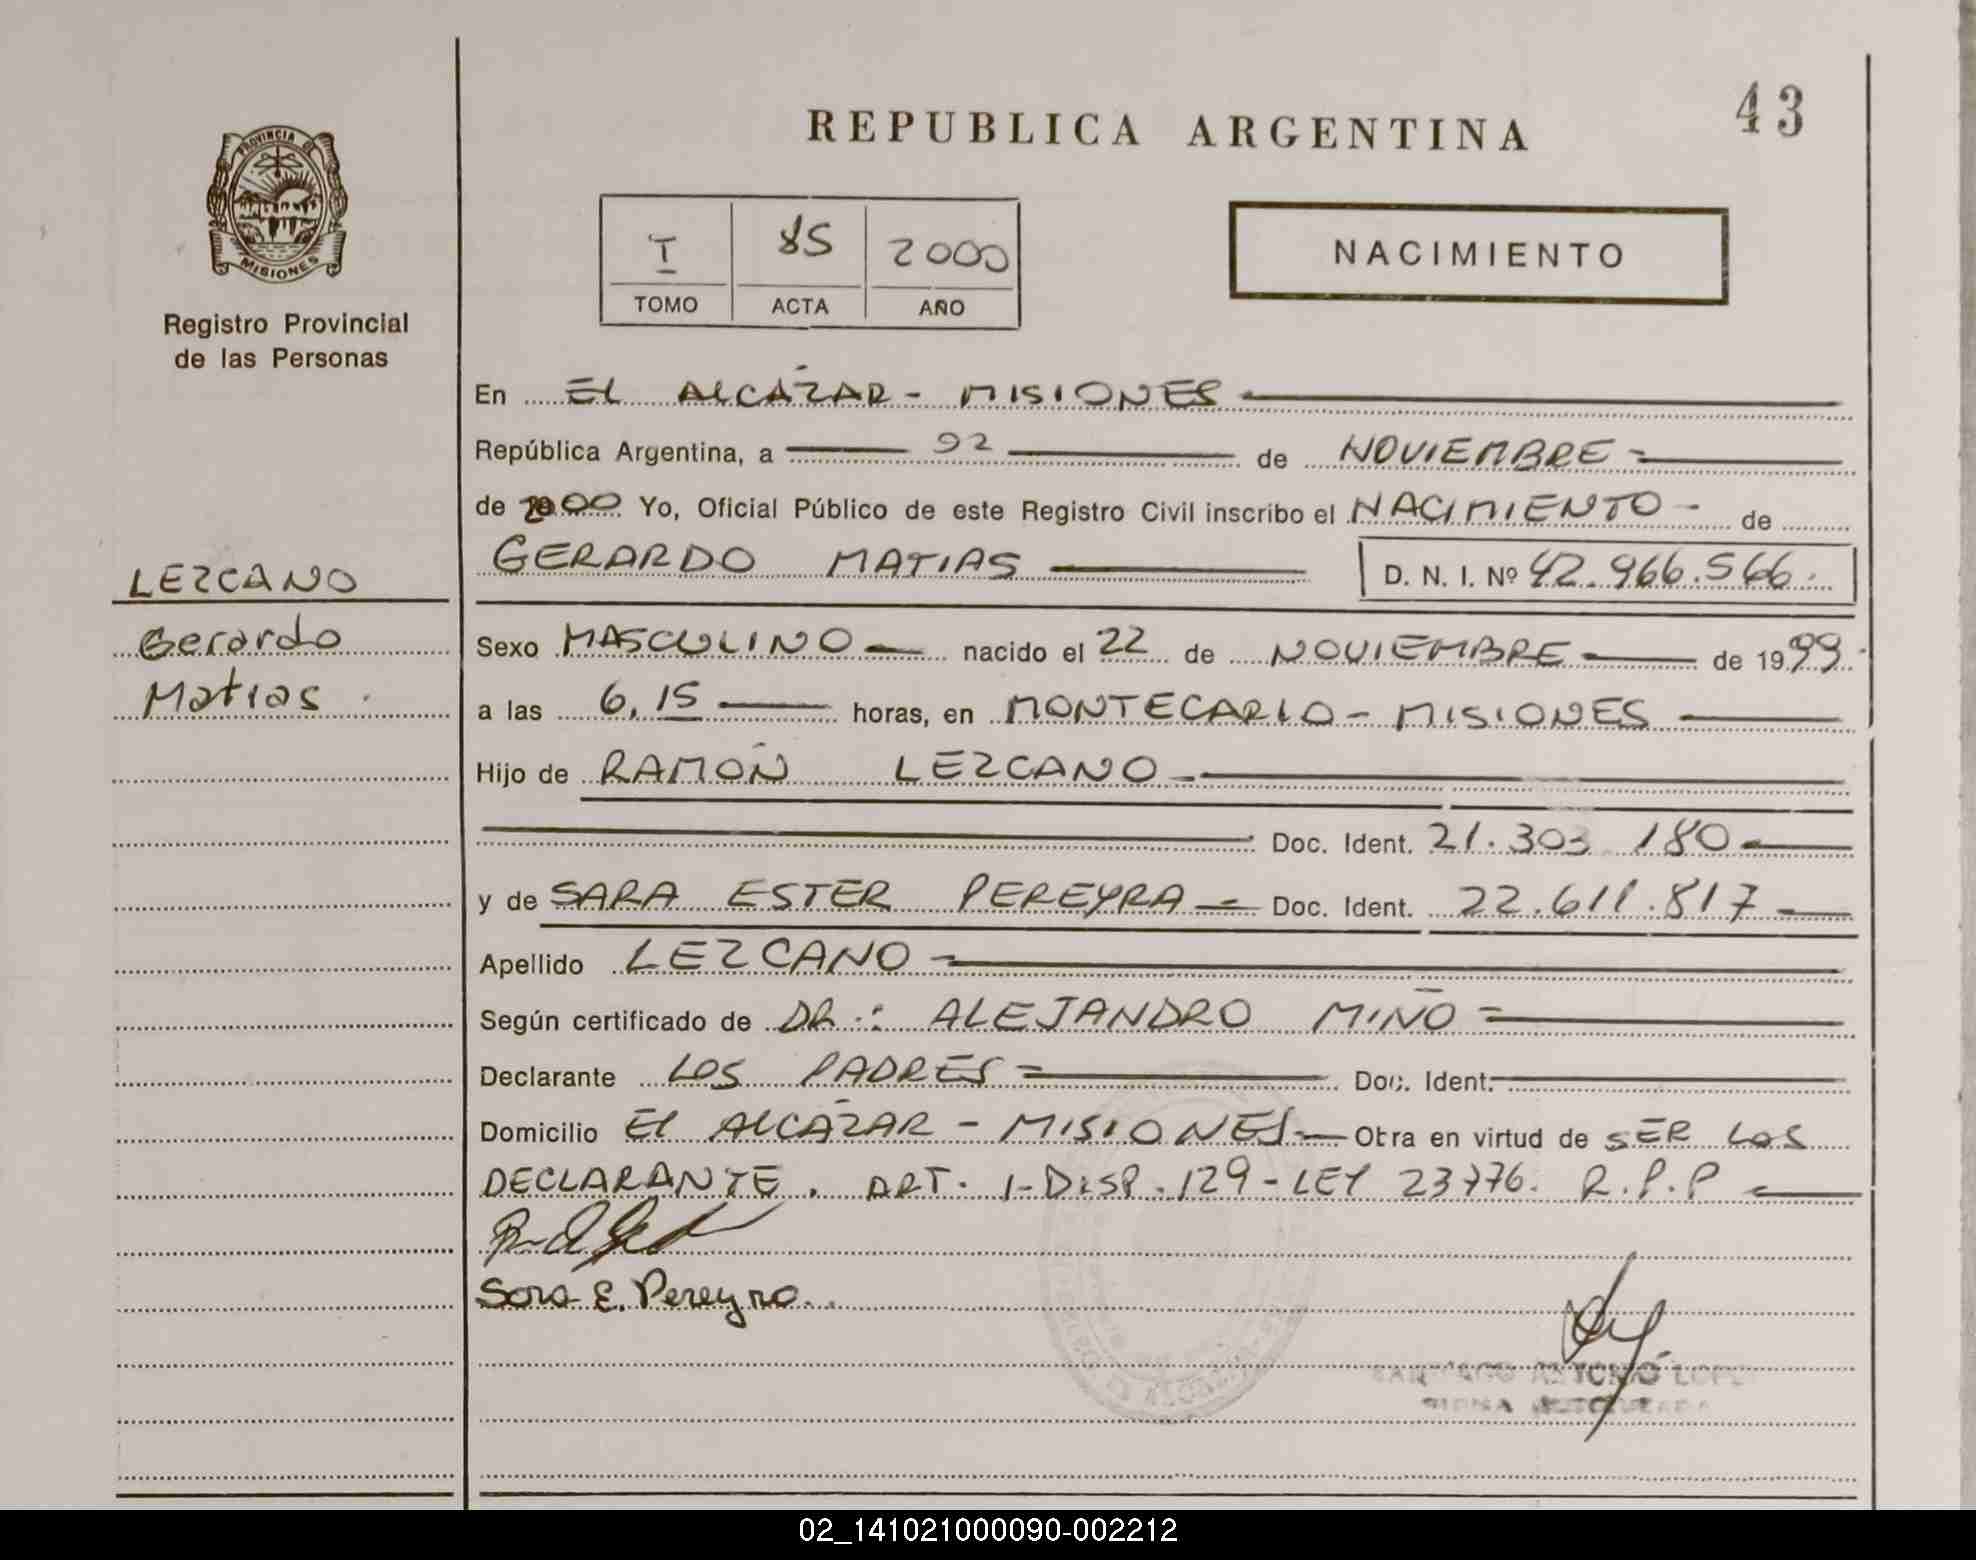 43
REPUBLICA ARGENTINA
PROVINCIA DE
MISIONES
Registro Provincial
de las Personas
I 85 2000
TOMO ACTA AÑO
NACIMIENTO
En EL ALCÁZAR - MISIONES
República Argentina, a 02 de NOVIEMBRE
de 2000 Yo, Oficial Público de este Registro Civil inscribo el NACIMIENTO - de
GERARDO MATIAS D. N. I. Nº 42.966.566.
LEZCANO
Gerardo
Matias.
Sexo MASCULINO nacido el 22 de NOVIEMBRE de 1999.
a las 6,15 horas, en MONTECARLO - MISIONES
Hijo de RAMÓN LEZCANO
Doc. Ident. 21.303 180
y de SARA ESTER PEREYRA Doc. Ident. 22.611.817
Apellido LEZCANO
Según certificado de DR.: ALEJANDRO MIÑO
Declarante LOS PADRES Doc. Ident.
Domicilio El ALCÁZAR - MISIONES Otra en virtud de SER LOS
DECLARANTE. ART. 1-DISP.129-LEY 23776. R.P.P
Sara E. Pereyra.
ANTONIO LOPEZ
02_141021000090-002212